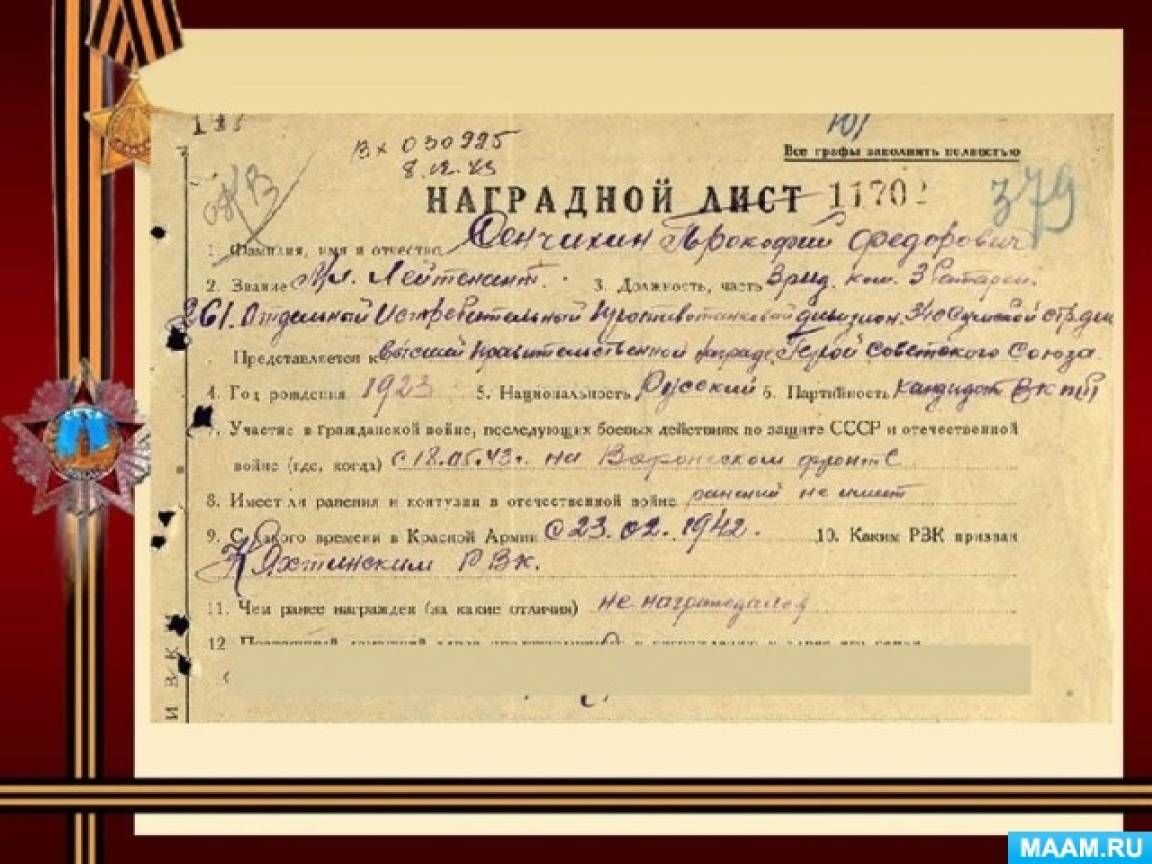 Вх 030925
8.12.43
Все графы заполнить полностью
НАГРАДНОЙ ЛИСТ 11702
379
1. Фамилия, имя и отчество Сенчихин Прокофий Федорович
2. Звание Мл. Лейтенант. 3. Должность, часть Врид. ком. Батареи.
261. Отдельный Истребительный Противотанковый дивизион. 340 Сумской стр. див
Представляется к высшей правительственной награде, Герой Советского Союза.
4. Год рождения 1923 5. Национальность Русский 6. Партийность Кандидат ВКПб
7. Участие в гражданской войне, последующих боевых действиях по защите СССР и отечественной
войне (где, когда) с 18.05.43. на Воронеском фронте
8. Имеет ли ранения и контузии в отечественной войне ранений не имеет
9. С какого времени в Красной Армии с 23.02.1942. 10. Каким РВК призван
Кяхтинским РВК.
11. Чем ранее награжден (за какие отличия) не награждался
12
MAAM.RU